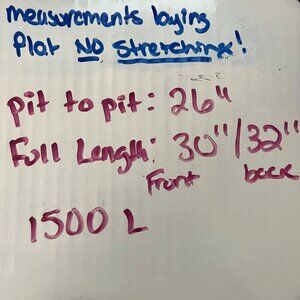 measurements laying
flat NO stretching!
pit to pit: 26"
Full Length: 30"/32"
Front back
1500 L